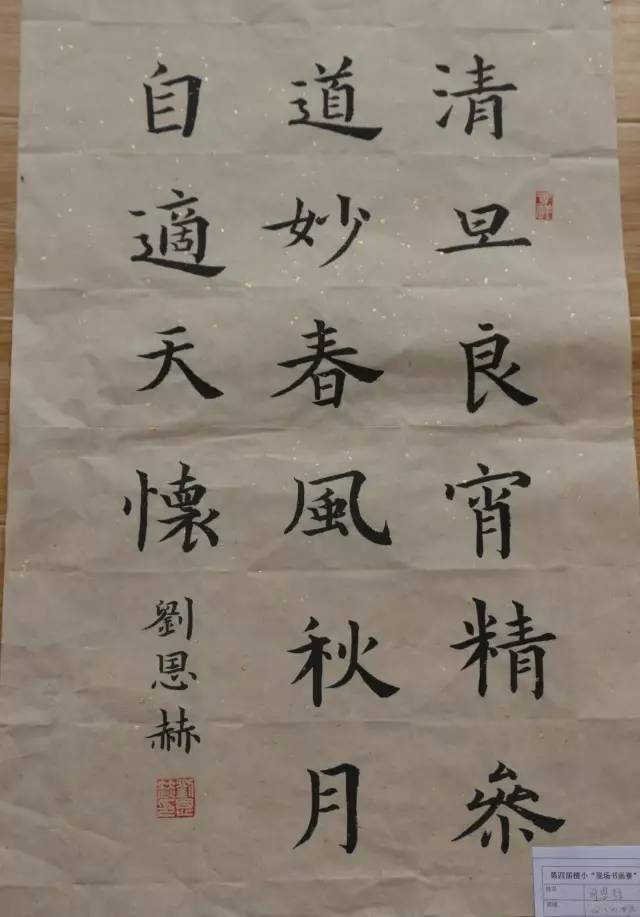 清旦良宵精參
道妙春風秋月
自適天懷
劉恩赫
第四届楼小“现场书画赛”
姓名
班级